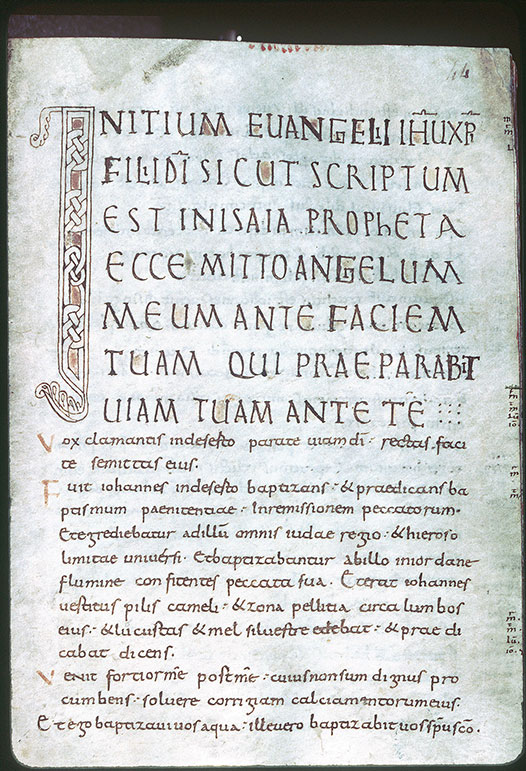 44
INITIUM EUANGELI IH̅U XP̅I
FILI DI̅ SICUT SCRIPTUM
EST IN ISAIA PROPHETA
ECCE MITTO ANGELUM
MEUM ANTE FACIEM
TUAM QUI PRAEPARABIT
UIAM TUAM ANTE TE̅
Vox clamantis indeserto parate uiam di· rectas faci
te semittas eius·
Fuit iohannes indeserto baptizans· & praedicans ba
ptismum paenitentiae· Inremissionem peccatorum·
Et egrediebatur adillū omnis iudae regio· & hieroso
limitae uniuersi· Et baptizabantur abillo iniordane
flumine confitentes peccata sua. Et erat iohannes
uestitus pilis cameli· & zona pellitia circa lumbos
eius· & lucustas & mel siluestre edebat· & praedi
cabat dicens.
Venit fortior me post me· cuius non sum dignus pro
cumbens· soluere corrigiam calciamentorum eius·
Et ego baptizaui uos aqua· ille uero baptizabit uos sp̅u sc̅o·